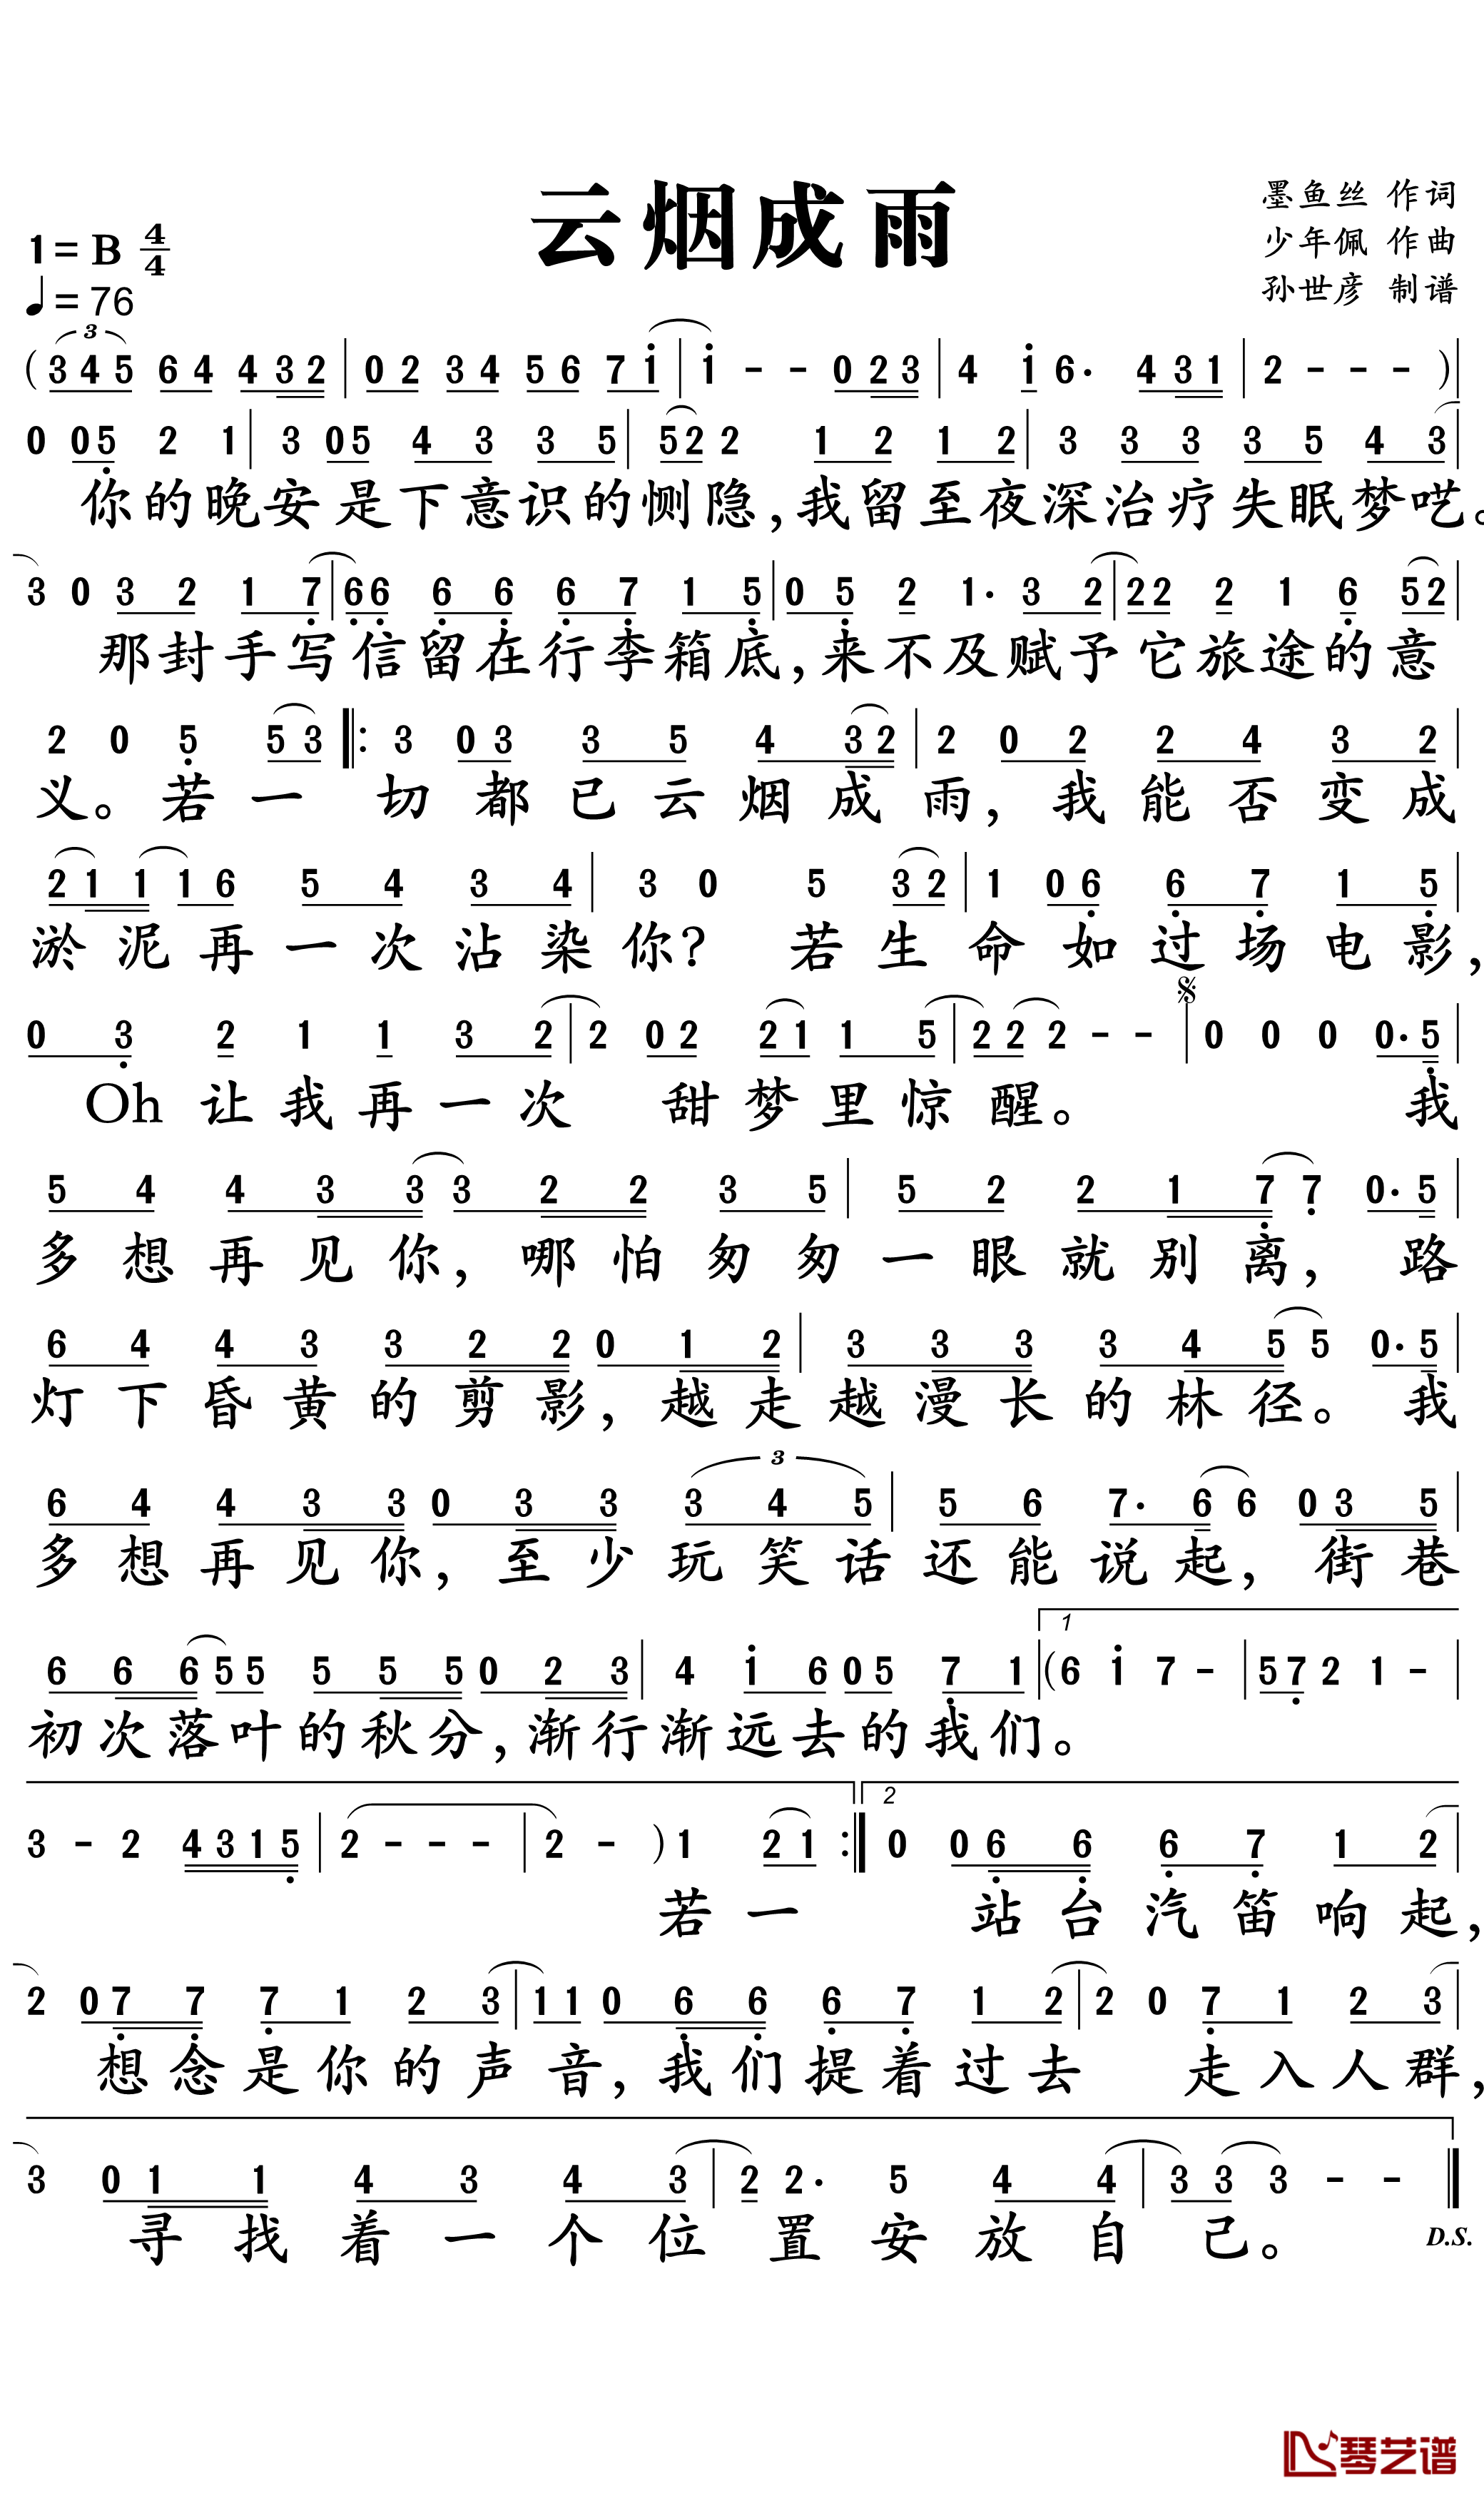 云烟成雨
墨鱼丝 作词
少年佩 作曲
孙世彦 制谱
1=B 4/4
♩=76
3
(3 4 5 6 4 4 3 2 | 0 2 3 4 5 6 7 1 | 1 - - 0 2 3 | 4 1 6· 4 3 1 | 2 - - - )|
0 0 5 2 1 | 3 0 5 4 3 3 5 | 5 2 2 1 2 1 2 | 3 3 3 3 5 4 3 |
你的晚安是下意识的恻隐,我留至夜深治疗失眠梦呓。
3 0 3 2 1 7 | 6 6 6 6 6 7 1 5 | 0 5 2 1· 3 2 | 2 2 2 1 6 5 2 |
那封手写信留在行李箱底,来不及赋予它旅途的意
2 0 5 5 3 |: 3 0 3 3 5 4 3 2 | 2 0 2 2 4 3 2 |
义。若一 切都已云烟成雨,我能否变成
2 1 1 1 6 5 4 3 4 | 3 0 5 3 2 | 1 0 6 6 7 1 5 |
淤泥再一次沾染你? 若生命如过场电影,
0 3 2 1 1 3 2 | 2 0 2 2 1 1 5 | 2 2 2 - - | 0 0 0 0· 5 |
Oh 让我再一次 甜梦里惊醒。 我
5 4 4 3 3 3 2 2 3 5 | 5 2 2 1 7 7 0· 5 |
多想再见你,哪怕匆匆一眼就别离, 路
6 4 4 3 3 2 2 0 1 2 | 3 3 3 3 4 5 5 0· 5 |
灯下昏黄的剪影,越走越漫长的林径。我
3
6 4 4 3 3 0 3 3 3 4 5 | 5 6 7· 6 6 0 3 5 |
多想再见你,至少玩笑话还能说起,街巷
1
6 6 6 5 5 5 5 5 0 2 3 | 4 1 6 0 5 7 1 | (6 1 7 - | 5 7 2 1 - |
初次落叶的秋分,渐行渐远去的我们。
2
3 - 2 4 3 1 5 | 2 - - - | 2 - ) 1 2 1 :| 0 0 6 6 6 7 1 2 |
若一 站台汽笛响起,
2 0 7 7 7 1 2 3 | 1 1 0 6 6 6 7 1 2 | 2 0 7 1 2 3 |
想念是你的声音,我们提着过去 走入人群,
3 0 1 1 4 3 4 3 | 2 2· 5 4 4 | 3 3 3 - - |
寻找着一个位置安放自己。 D.S.
琴艺谱